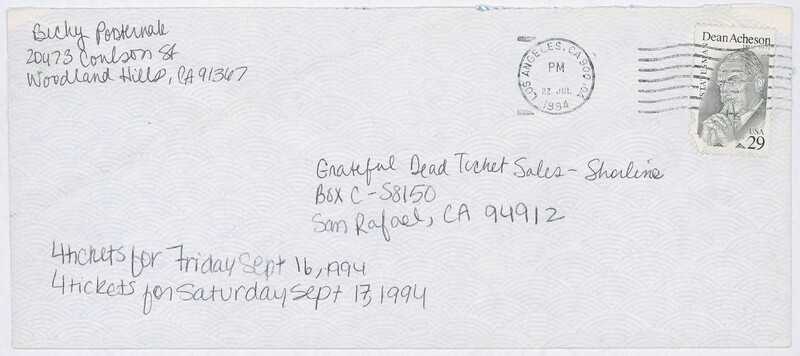 Becky Posternak
20473 Coulson St
Woodland Hills, CA 91367
LOS ANGELES, CA 900
PM
22 JUL
1994
Dean Acheson
STATESMAN
USA
29
Grateful Dead Ticket Sales - Shoreline
Box C-S8150
San Rafael, CA 94912
4 tickets for Friday Sept 16, 1994
4 tickets for Saturday Sept 17, 1994